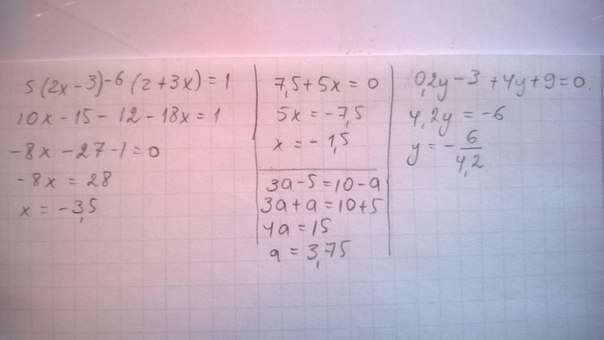 5(2x-3)-6(2+3x)=1
10x-15-12-18x=1
-8x-27-1=0
-8x=28
x=-3,5
7,5+5x=0
5x=-7,5
x=-1,5
3a-5=10-a
3a+a=10+5
4a=15
a=3,75
0,2y-3+4y+9=0.
4,2y=-6
y=-6/4,2